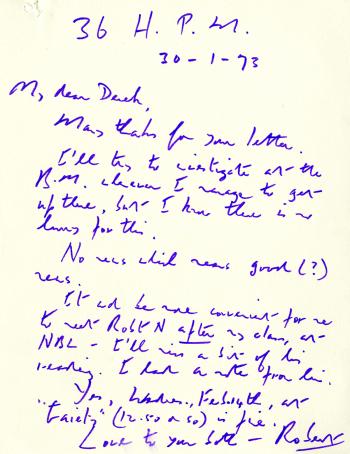 36 H. P. M.
30-1-73
My dear Derek,
Many thanks for your letter.
I'll try to investigate at the
B.M. whenever I manage to get
up there, but I know there is no
hurry for this.
No news which means good (?)
news.
It wd be more convenient for me
to meet Robt N after my class, at
NBL - I'll miss a bit of his
reading. I had a note from him.
Yes, Forsyth, at
"Gaiety" (12.50 or so) is fine.
Love to you both - Robert